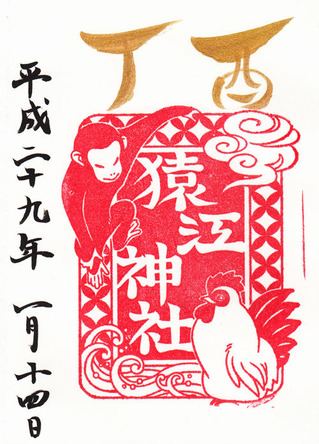 丁酉
猿江
神社
平成二十九年 一月十四日